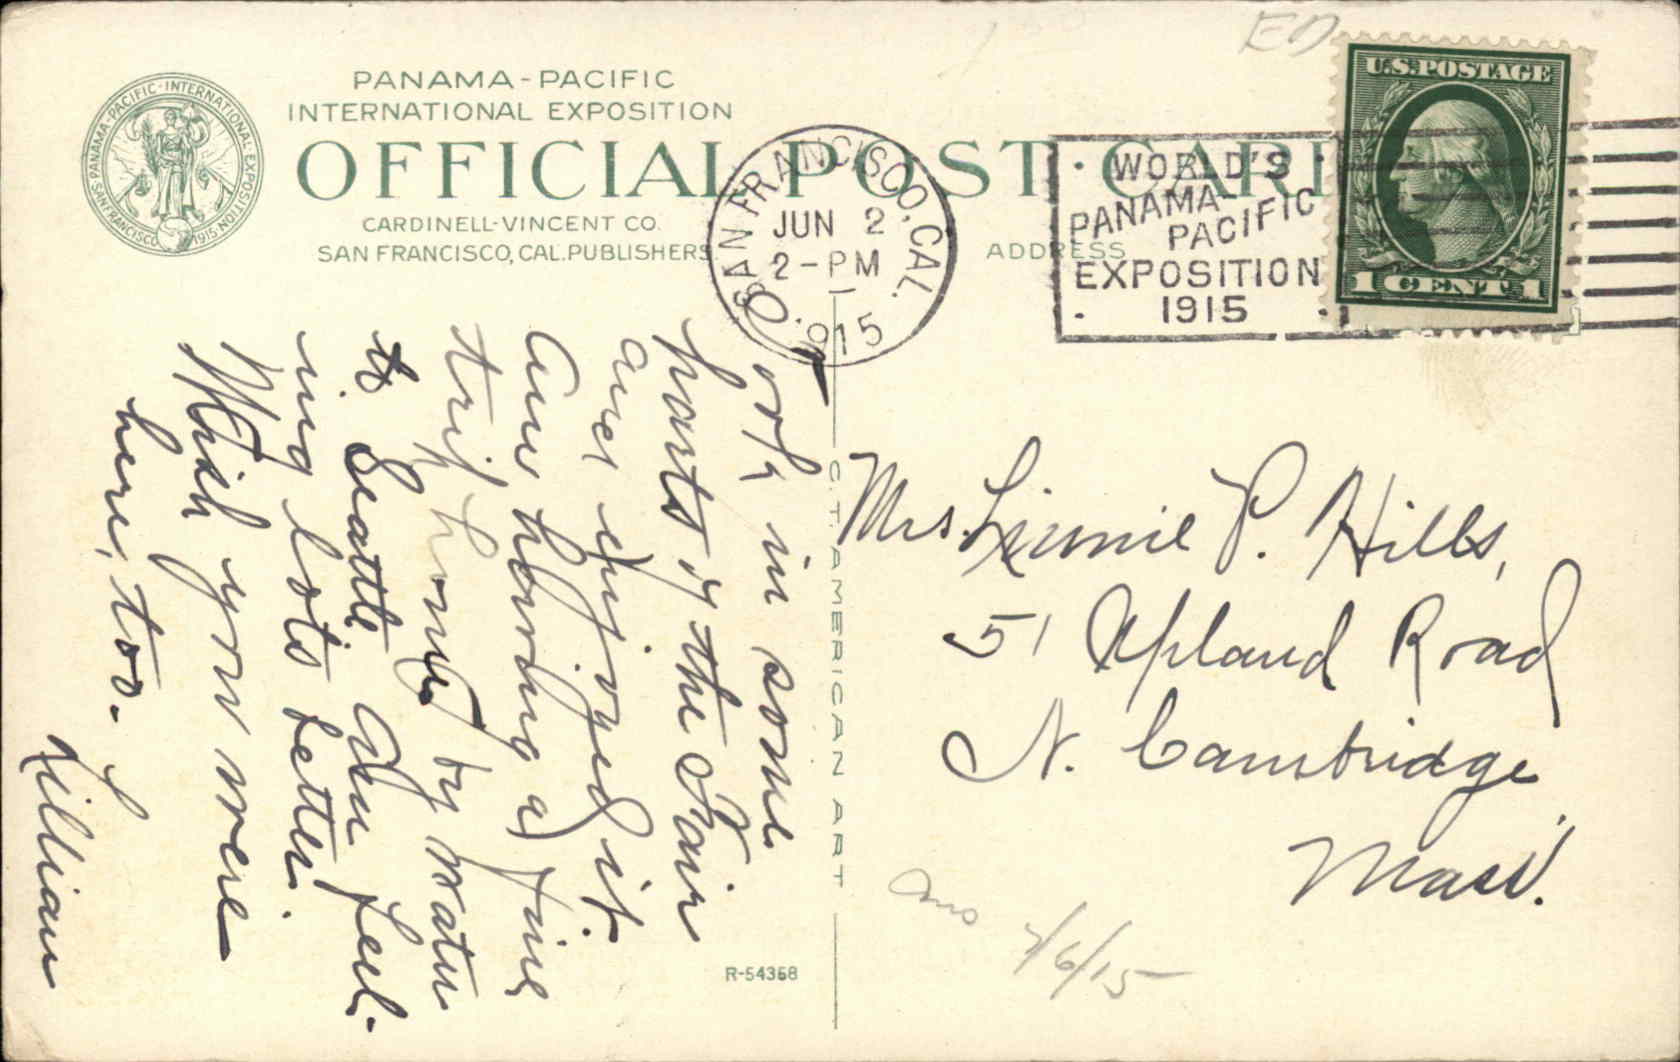 PANAMA-PACIFIC
INTERNATIONAL EXPOSITION
OFFICIAL POST CARD
CARDINELL-VINCENT CO.
SAN FRANCISCO, CAL. PUBLISHERS.
PANAMA-PACIFIC-INTERNATIONAL-EXPOSITION
SAN FRANCISCO 1915
ADDRESS
SAN FRANCISCO, CAL.
JUN 2
2-PM
1915
WORLD'S
PANAMA-
PACIFIC
EXPOSITION
1915
U.S. POSTAGE
1 CENT 1
ED
in some
parts of the Fair
and enjoyed it.
Am having a fine
trip by water
to Seattle. Am feel-
ing lots better.
Wish you were
here, too.
Lillian
C.T. AMERICAN ART
R-54368
Mrs. Linnie P. Hills,
51 Upland Road
N. Cambridge,
Mass.
Ans 7/6/15